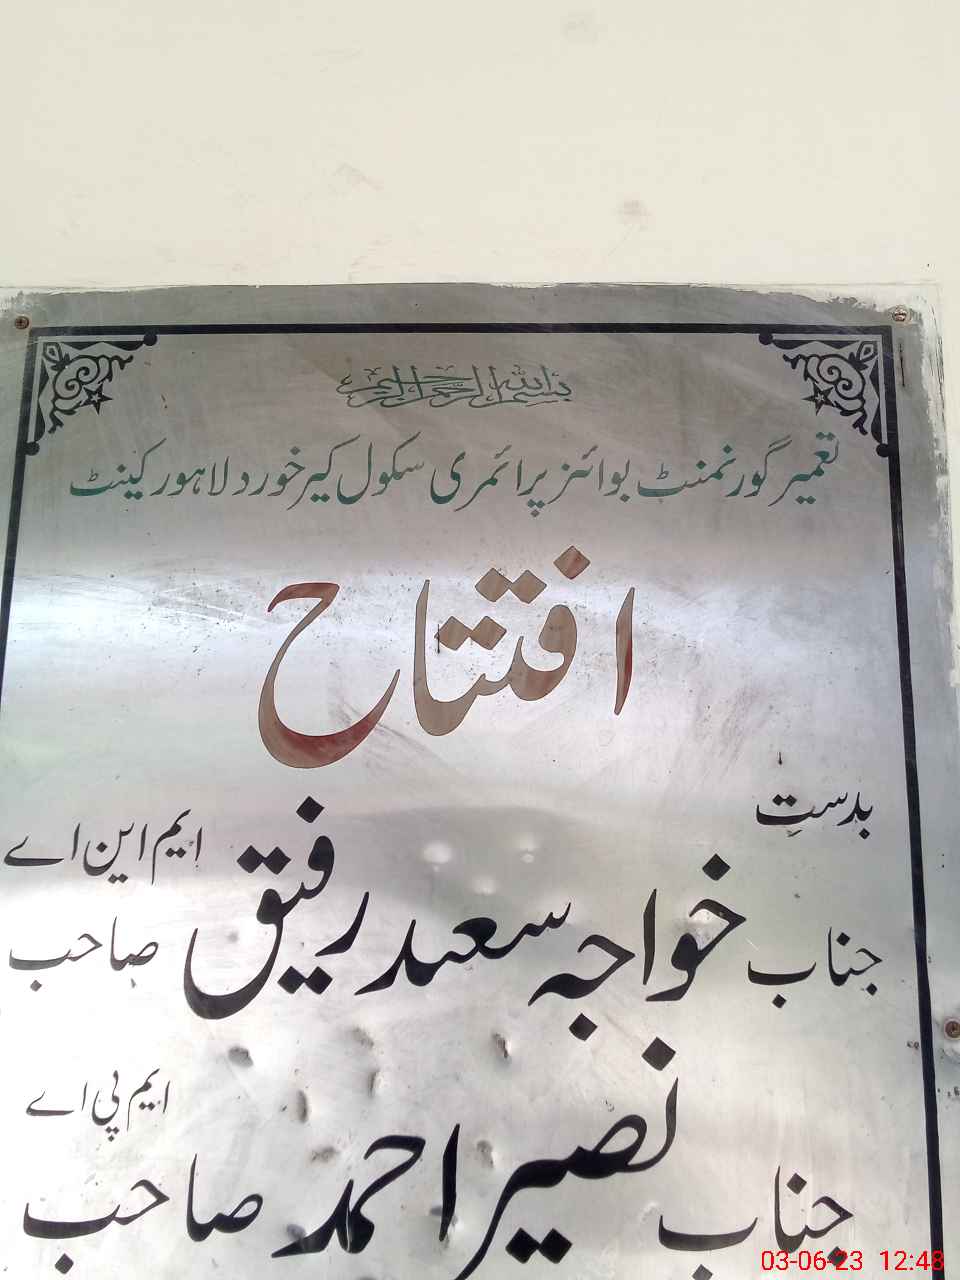 بسم اللہ الرحمن الرحیم
تعمیر گورنمنٹ بوائز پرائمری سکول کیر خورد لاہور کینٹ
افتتاح
بدستِ
جناب خواجہ سعد رفیق صاحب ایم این اے
جناب نصیر احمد صاحب ایم پی اے
03-06-23 12:48